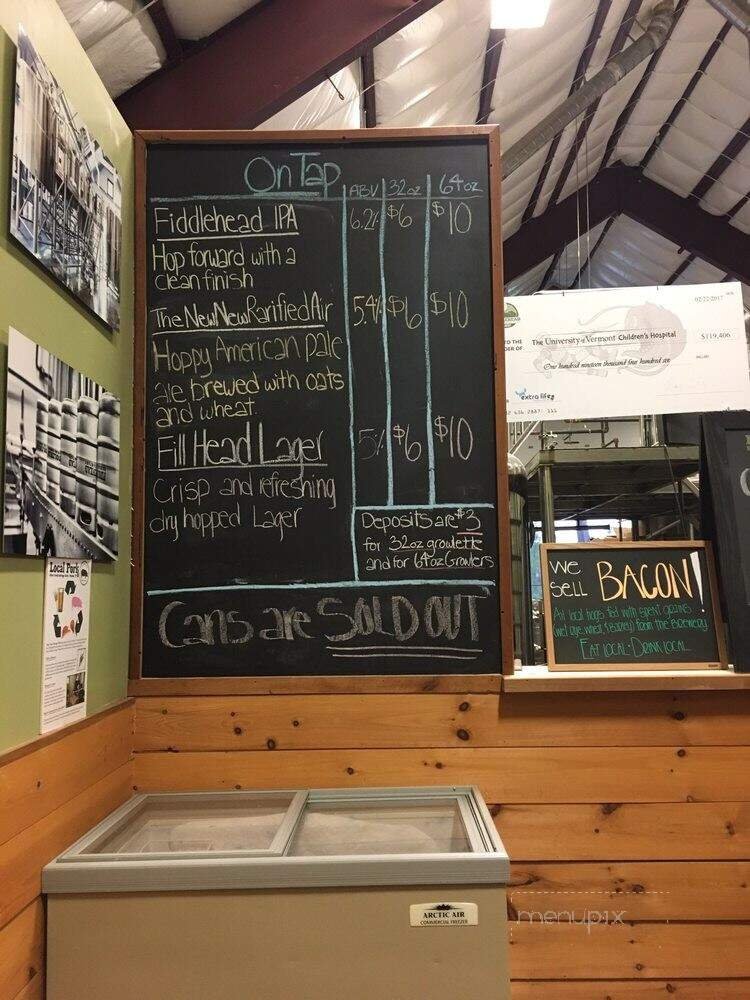 On Tap
ABV 32oz 64oz
Fiddlehead IPA 6.2% $6 $10
Hop forward with a
clean finish
The New New Rarified Air 5.4% $6 $10
Hoppy American pale
ale brewed with oats
and wheat.
Fill Head Lager 5% $6 $10
Crisp and refreshing
dry hopped Lager
Deposits are $3
for 32oz growlette
and for 64oz Growlers
Cans are SOLD OUT
02/22/2017
The University of Vermont Children's Hospital $119,406
One hundred nineteen thousand four hundred six
extra life
WE
SELL BACON!
All local hogs fed with spent grains
(wet rye, wheat, & barley) from the Brewery
EAT LOCAL - DRINK LOCAL
Local Pork
ARCTIC AIR
COMMERCIAL FREEZER
menupix